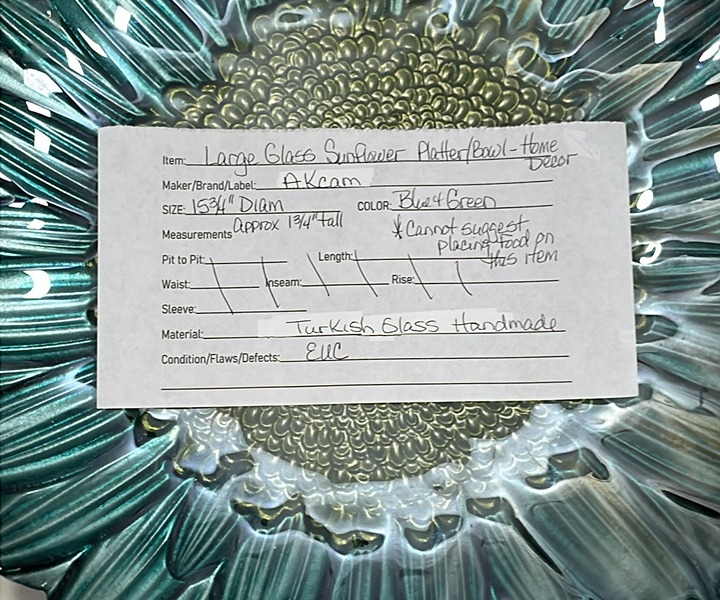 Item: Large Glass Sunflower Platter/Bowl - Home
Decor
Maker/Brand/Label: AKcam
SIZE: 15 3/4" Diam COLOR: Blue & Green
Measurements approx 1 3/4" tall *Cannot suggest
placing food on
this item
Pit to Pit: Length:
Waist: Inseam: Rise:
Sleeve:
Material: Turkish Glass Handmade
Condition/Flaws/Defects: EUC